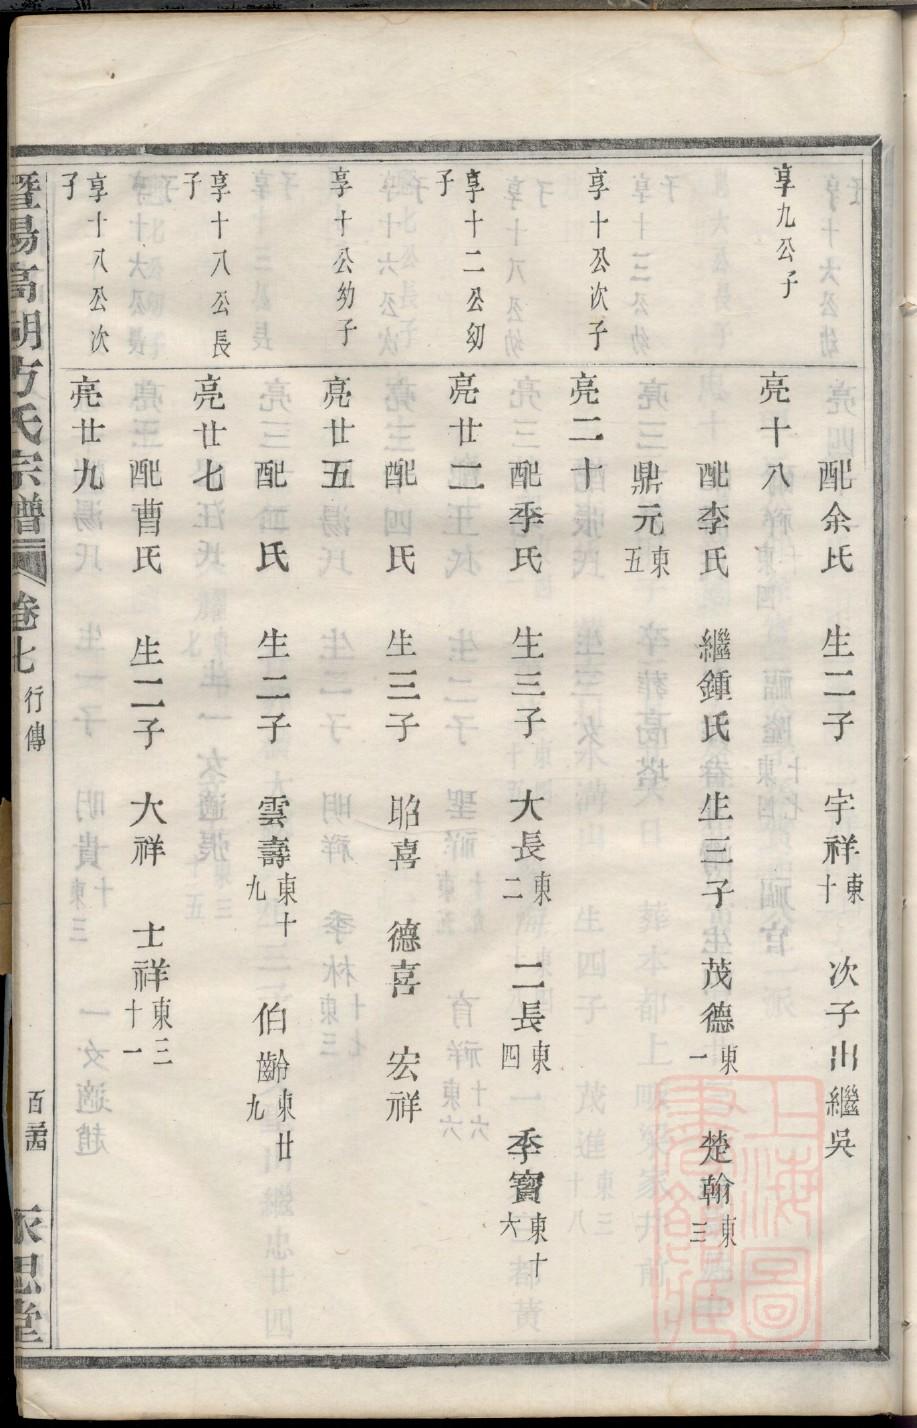 配余氏 生二子 宇祥東十 次子出繼吳
享九公子 亮十八
配李氏 繼鍾氏 生三子 茂德東一 楚翰東三
鼎元東五
享十公次子 亮二十
配季氏 生三子 大長東二 二長東四 季寶東十六
享十二公幼子 亮廿二
配 氏 生三子 昭喜 德喜 宏祥
享十公幼子 亮廿五
配 氏 生二子 雲壽東十九 伯齡東廿九
享十八公長子 亮廿七
配曹氏 生二子 大祥 士祥東三十一
享十八公次子 亮廿九
暨陽高湖方氏宗譜 卷七 行傳 永思堂